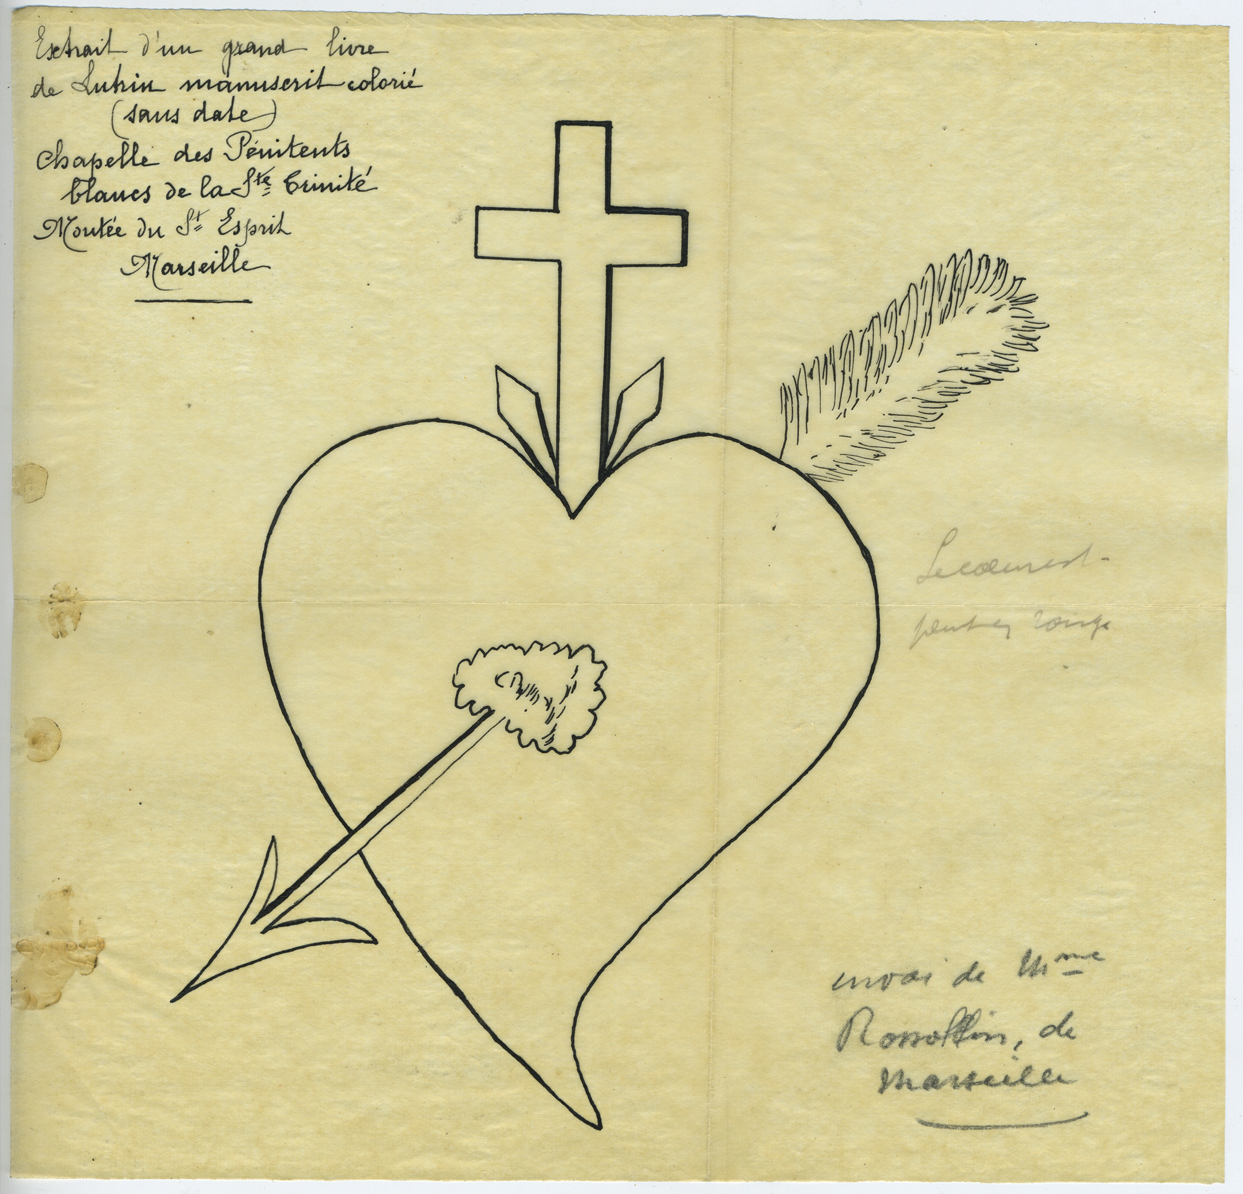 Extrait d'un grand livre
de Lutrin manuscrit colorié
(sans date)
Chapelle des Pénitents
blancs de la Ste Trinité
Montée du St Esprit
Marseille
Le cœur est
peint en rouge
envoi de Mme
de
Marseille